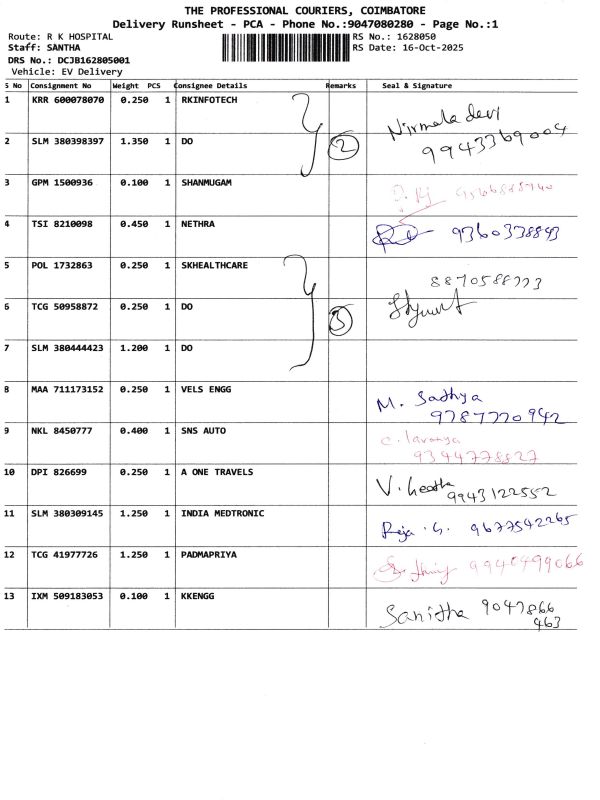 THE PROFESSIONAL COURIERS, COIMBATORE
Delivery Runsheet - PCA - Phone No.:9047080280 - Page No.:1
Route: R K HOSPITAL RS No.: 1628050
Staff: SANTHA RS Date: 16-Oct-2025
DRS No.: DCJB162805001
Vehicle: EV Delivery
S No Consignment No Weight PCS Consignee Details Remarks Seal & Signature
1 KRR 600078070 0.250 1 RKINFOTECH Nirmala devi
2 SLM 380398397 1.350 1 DO 2 9943369004
3 GPM 1500936 0.100 1 SHANMUGAM
4 TSI 8210098 0.450 1 NETHRA 9360338893
5 POL 1732863 0.250 1 SKHEALTHCARE 8870588773
6 TCG 50958872 0.250 1 DO 3
7 SLM 380444423 1.200 1 DO
8 MAA 711173152 0.250 1 VELS ENGG M. Sathya
9787770942
9 NKL 8450777 0.400 1 SNS AUTO C. lavanya
9344778827
10 DPI 826699 0.250 1 A ONE TRAVELS V.
9943122552
11 SLM 380309145 1.250 1 INDIA MEDTRONIC Reja .G. 9677542265
12 TCG 41977726 1.250 1 PADMAPRIYA 9940499066
13 IXM 509183053 0.100 1 KKENGG Sanitha 9047866
463